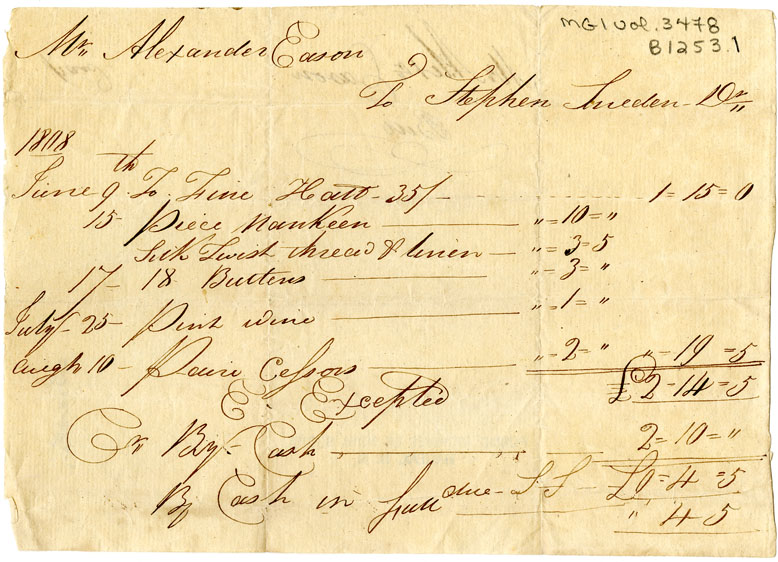 MG1 vol. 3478
B1253.1
Mr. Alexander Eason
To Stephen Sneden Dr
1808
June 9th To Fine Hatt - 35/ - 1 = 15 = 0
15 piece Nankeen " 10 = "
Silk Twist thread & linen " 3 = 5
17 - 18 Buttons " - 3 = "
July - 25 - Pint wine " = 1 = "
augh 10 - Paire Cessors " - 2 = " " - 19 = 5
£ 2 - 14 = 5
E. Excepted
Cr By - Cash 2 = 10 = "
By Cash in full due - S S - £0 = 4 = 5
" 4 5